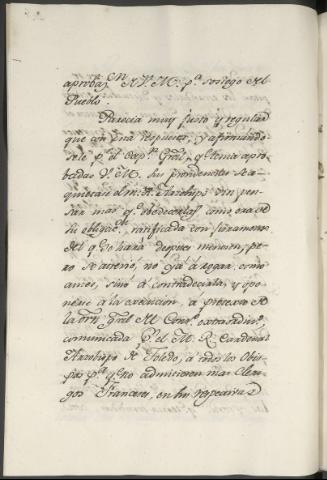 aprobaz.on R. V. M. p.a sosiego del
Pueblo.
Parecia muy justo y regular
que con una respuesta, y afirmando
sele p.r el Cap.n Gral, q.e tenia apro
badas V. M. sus providencias se a
quietase el M. R. Arzobispo sin pen
sar mas q.e obedecerlas como era de
su obligac.on ratificada con juramento
del q.e no havia despues menos; pe
ro se atrevió, no ya á rogar, como
antes, sino á contradecirla, y opo
nerse á la execucion, á pretexto de
la orn. gral del Cons.o extraordin.o
comunicada p.r el M. R. Cardenal
Arzobispo de Toledo, á todos los Obis
pos p.a q.e no admitiesen mas Cleri
gos Franceses, en sus respectivas D